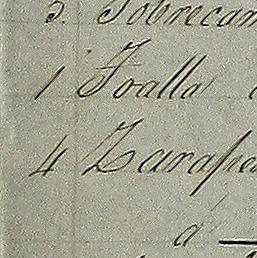 3. Sobrecam
1 Toalla
4 Zarape
á